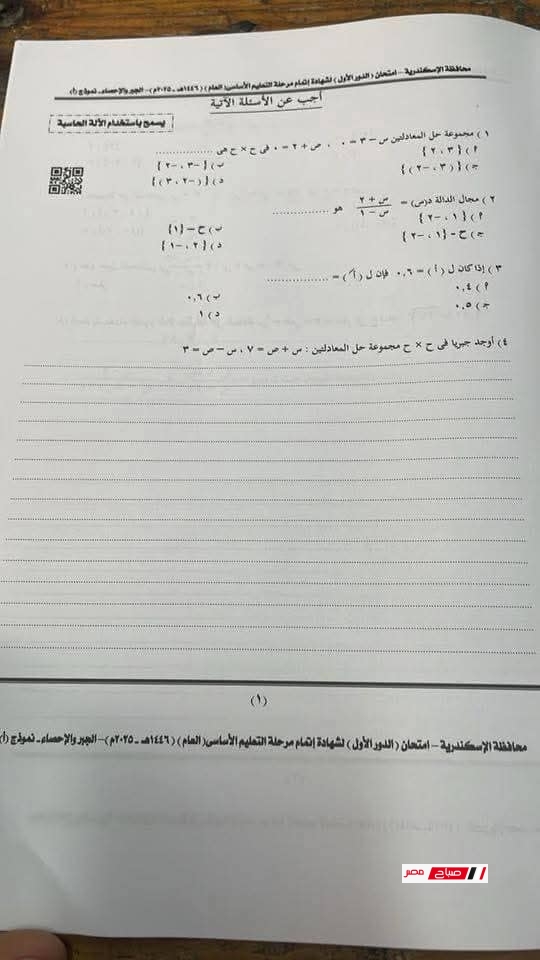 محافظة الإسكندرية – امتحان ( الدور الأول ) لشهادة إتمام مرحلة التعليم الأساسى( العام ) ( ١٤٤٦هـ ـ ٢٠٢٥م )– الجبر والإحصاء ـ نموذج (أ)
أجب عن الأسئلة الآتية
يسمح باستخدام الآلة الحاسبة
١ ) مجموعة حل المعادلتين س – ٣ = ٠ ، ص + ٢ = ٠ فى ح × ح هى ................
أ ) { ٣ ، ٢ }
ب ) { –٣ ، –٢ }
جـ ) { ( ٣ ، –٢ ) }
د ) { ( –٢ ، ٣ ) }
٢ ) مجال الدالة د(س) = س + ٢ / س – ١ هو ................
أ ) { ١ ، –٢ }
ب ) ح – { ١ }
جـ ) ح – { ١ ، –٢ }
د ) { ٢ ، –١ }
٣ ) إذا كان ل ( أ ) = ٠,٦ فإن ل ( أ َ ) = ................
أ ) ٠,٤
ب ) ٠,٦
جـ ) ٠,٥
د ) ١
٤ ) أوجد جبريا فى ح × ح مجموعة حل المعادلتين : س + ص = ٧ ، س – ص = ٣
(١)
محافظة الإسكندرية – امتحان ( الدور الأول ) لشهادة إتمام مرحلة التعليم الأساسى( العام ) ( ١٤٤٦هـ ـ ٢٠٢٥م )– الجبر والإحصاء ـ نموذج (أ)
صباح مصر